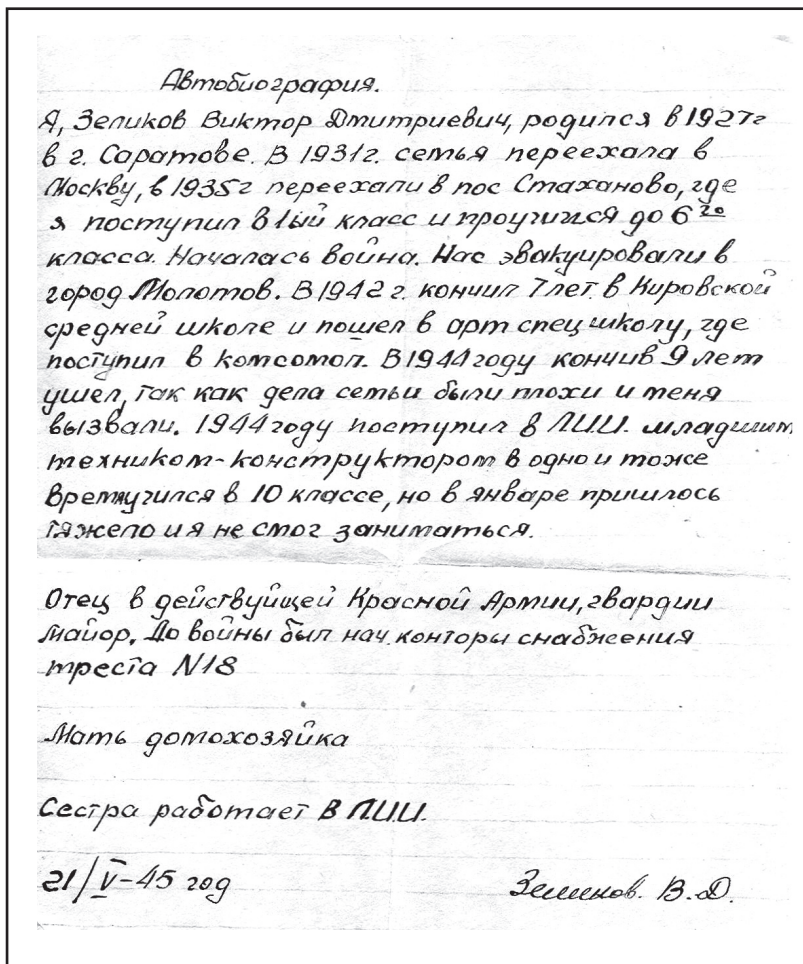 Автобиография.
Я, Зеликов Виктор Дмитриевич, родился в 1927г
в г. Саратове. В 1931г. семья переехала в
Москву, в 1935г переехали в пос Стаханово, где
я поступил в 1ый класс и проучился до 6го
класса. Началась война. Нас эвакуировали в
город Молотов. В 1942 г. кончил 7 лет. в Кировской
средней школе и пошел в арт спец школу, где
поступил в комсомол. В 1944 году кончив 9 лет
ушел, так как дела семьи были плохи и меня
вызвали. 1944 году поступил в ЛИИ. младшим
техником-конструктором в одно и тоже
время учился в 10 классе, но в январе пришлось
тяжело и я не смог заниматься.
Отец в действуйщей Красной Армии, гвардии
майор. До войны был нач. конторы снабжения
треста N18
Мать домохозяйка
Сестра работает в ЛИИ.
21/V-45 год
Зеликов. В.Д.